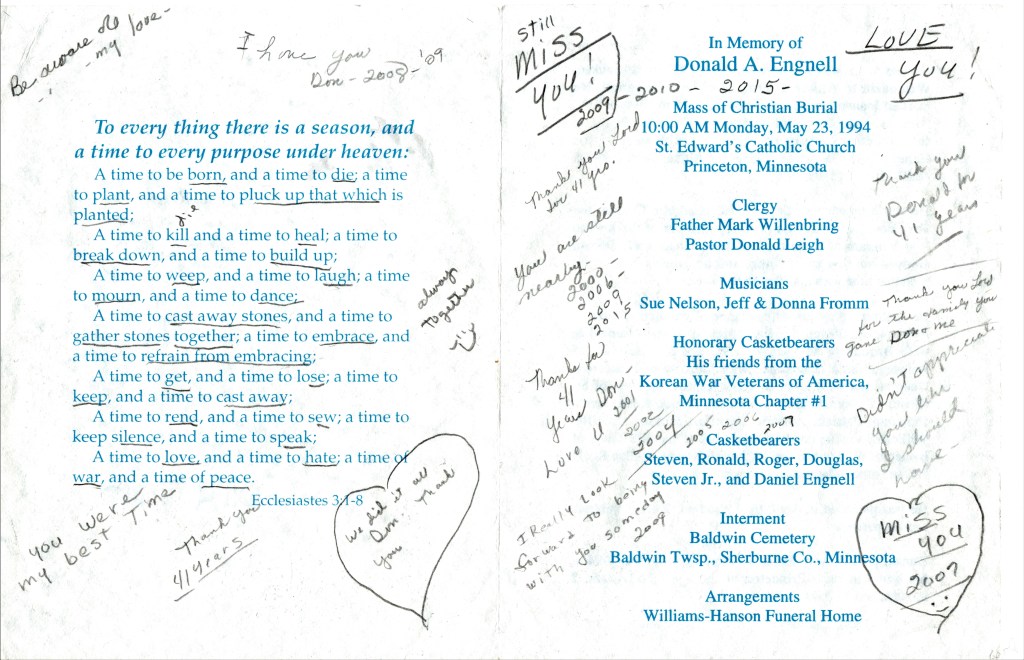 Be aware of
my love-
I love you
Don - 2008 - '09
To every thing there is a season, and
a time to every purpose under heaven:
A time to be born, and a time to die; a time
to plant, and a time to pluck up that which is
planted;
die
A time to kill and a time to heal; a time to
break down, and a time to build up;
A time to weep, and a time to laugh; a time
to mourn, and a time to dance;
A time to cast away stones, and a time to
gather stones together; a time to embrace, and
a time to refrain from embracing;
A time to get, and a time to lose; a time to
keep, and a time to cast away;
A time to rend, and a time to sew; a time to
keep silence, and a time to speak;
A time to love, and a time to hate; a time of
war, and a time of peace.
Ecclesiastes 3:1-8
always
together
you were
my best Time
Thank you
41 years
we did it all
Don. Thank
you
still
MISS
YOU!
2009 - 2010 - 2015 -
LOVE
YOU!
In Memory of
Donald A. Engnell
Mass of Christian Burial
10:00 AM Monday, May 23, 1994
St. Edward's Catholic Church
Princeton, Minnesota
Clergy
Father Mark Willenbring
Pastor Donald Leigh
Musicians
Sue Nelson, Jeff & Donna Fromm
Honorary Casketbearers
His friends from the
Korean War Veterans of America,
Minnesota Chapter #1
Casketbearers
Steven, Ronald, Roger, Douglas,
Steven Jr., and Daniel Engnell
Interment
Baldwin Cemetery
Baldwin Twsp., Sherburne Co., Minnesota
Arrangements
Williams-Hanson Funeral Home
Thank you Lord
for 41 yrs.
You are still
nearby-
2000-
2006-
2009
2015
Thanks for
41
years Don-
Love U 2001
2002
2004 2005 2006 2007
I Really Look
forward to being
with you someday
2009
Thank you
Donald for
41 years
Thank you Lord
for the family you
gave Don & me
Didn't appreciate
you like
I should
have
MISS
YOU
2007